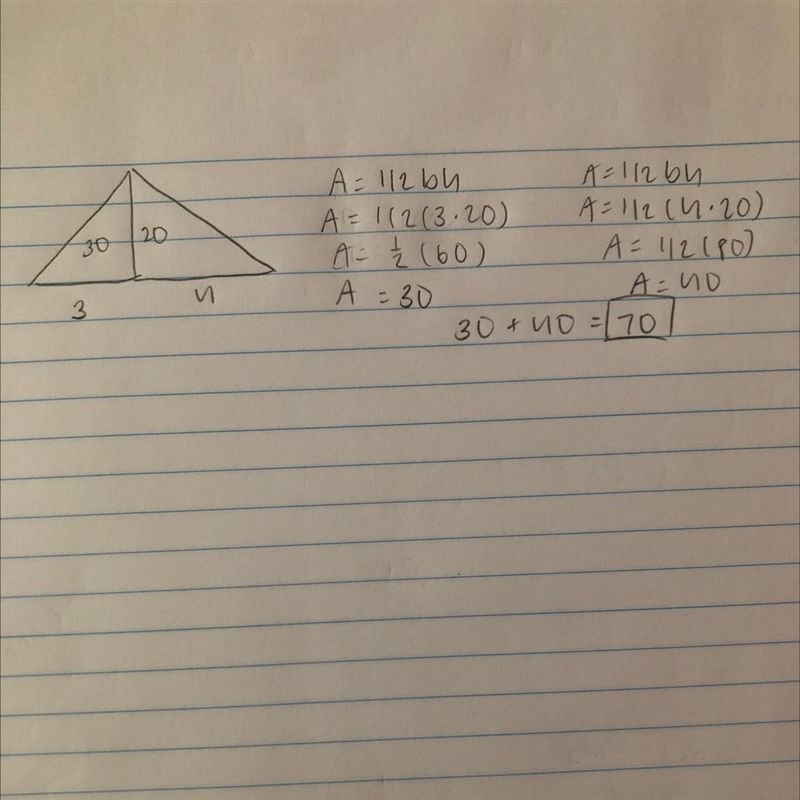 30 20
3 4
A = 1/2bh
A = 1/2(3·20)
A = ½(60)
A = 30
A = 1/2bh
A = 1/2(4·20)
A = 1/2(80)
A = 40
30 + 40 = 70